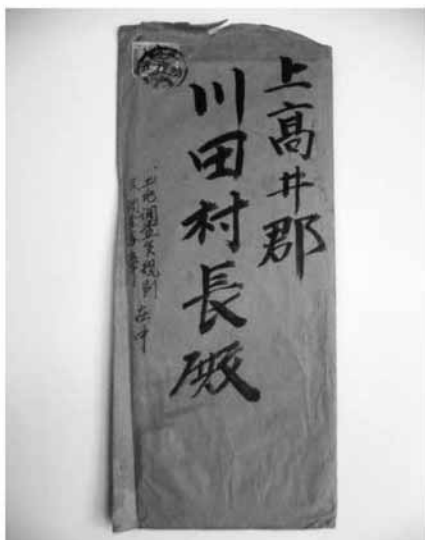 上高井郡
川田村長殿
一、土地調査員規則 在中